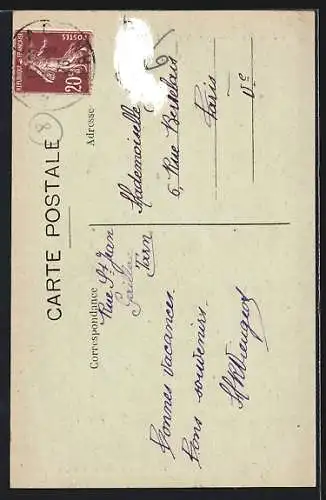 CARTE POSTALE
Correspondance
Rue St Jean
Gaillac
Tarn
Bonnes vacances.
Bons souvenirs.
Adresse
Mademoiselle
6, Rue
Paris
Vᵉ
REPUBLIQUE FRANÇAISE
POSTES
20c
8